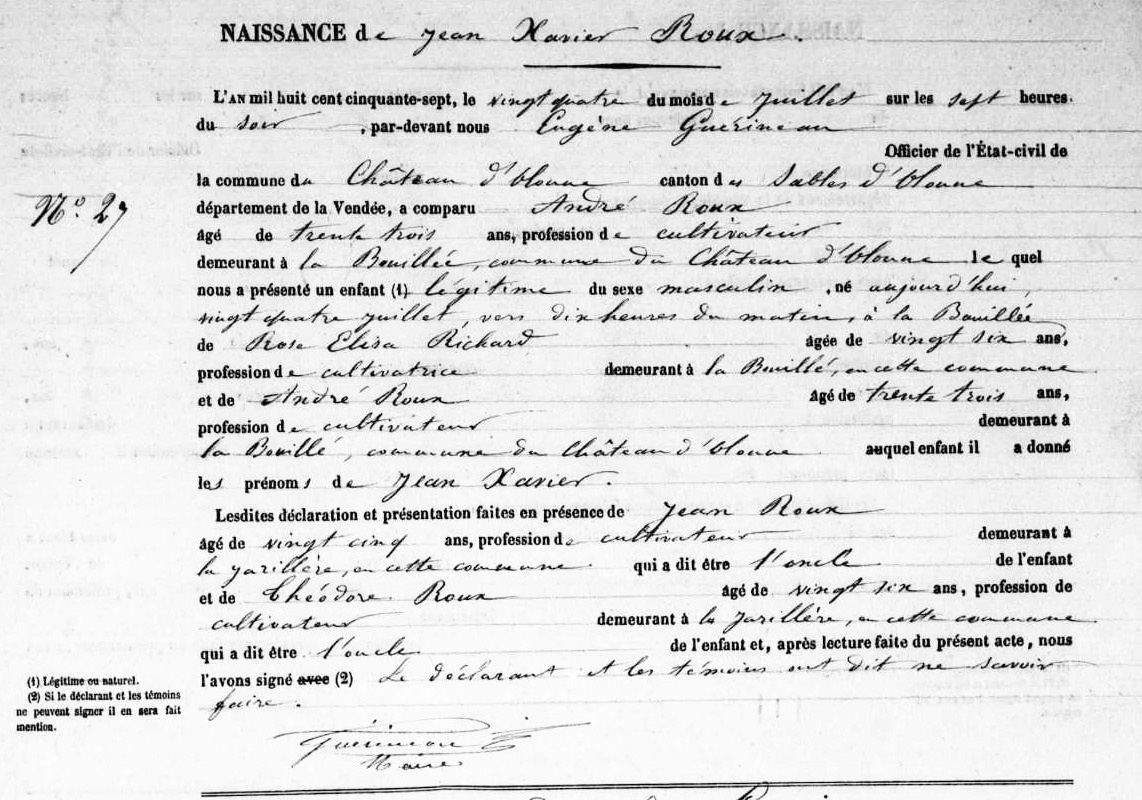 NAISSANCE de Jean Xavier Roux.
L'AN mil huit cent cinquante-sept, le vingt quatre du mois de Juillet sur les sept heures.
du soir, par-devant nous Eugène Guérineau
Officier de l'État-civil de
la commune du Château d'Olonne canton des Sables d'Olonne
département de la Vendée, a comparu André Roux
âgé de trente trois ans, profession de cultivateur
demeurant à la Bouillée, commune du Château d'Olonne le quel
nous a présenté un enfant (1) légitime du sexe masculin, né aujourd'hui,
vingt quatre juillet, vers dix heures du matin, à la Bouillée
de Rose Elisa Richard âgée de vingt six ans,
profession de cultivatrice demeurant à la Bouillé, en cette commune
et de André Roux âgé de trente trois ans,
profession de cultivateur demeurant à
la Bouillé, commune du Château d'Olonne auquel enfant il a donné
les prénoms de Jean Xavier.
Lesdites déclaration et présentation faites en présence de Jean Roux
âgé de vingt cinq ans, profession de cultivateur demeurant à
la Jarillère, en cette commune qui a dit être l'oncle de l'enfant
et de Théodore Roux âgé de vingt six ans, profession de
cultivateur demeurant à la Jarillère, en cette commune
qui a dit être l'oncle de l'enfant et, après lecture faite du présent acte, nous
l'avons signé avec (2) Le déclarant et les témoins ont dit ne savoir
faire.
Guérineau
Maire
N.° 27
(1) Légitime ou naturel.
(2) Si le déclarant et les témoins
ne peuvent signer il en sera fait
mention.